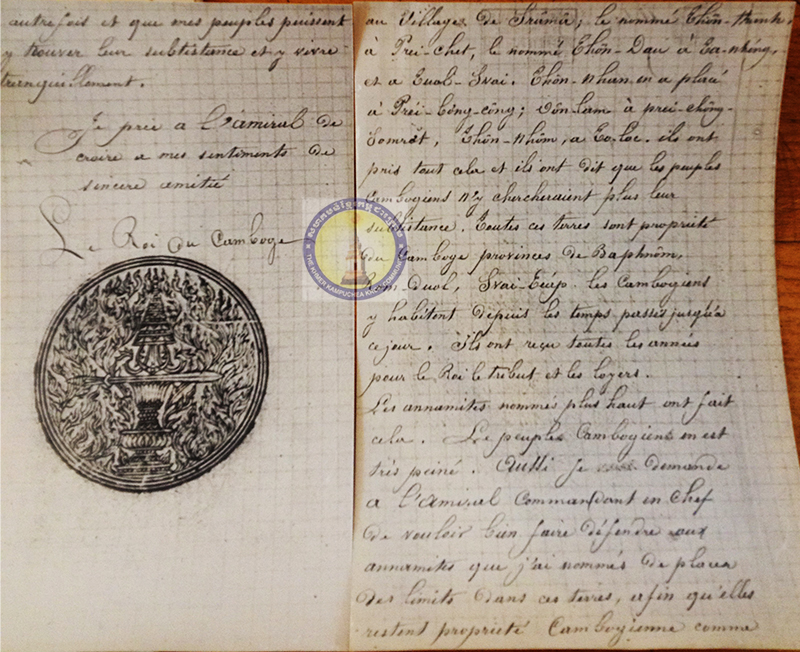 autrefois et que mes peuples puissent
y trouver leur subtistance et y vivre
tranquillement.
Je prie a l'amiral de
croire a mes sentiments de
sincere amitié
Le Roi du Camboge
au Village de Trûmir; le nommé Thôn-thinh,
à Prei chet, le nommé Thôn-Dau à Ea-nhéng,
et a Eual-Svai. Thôn-Nhan en a placé
à Préi-bông-công; Vôn lam à prei-chông-
Somrêt, Thôn-Nhôm, a Eo.loc. ils ont
pris tout cela et ils ont dit que les peuples
Cambogiens n'y chercheraient plus leur
subtistance. Toutes ces terres sont propriété
du Camboge provinces de Baphnôm,
Rom-Duol, Svai-Eiép. les Cambogiens
y habitent depuis les temps passés jusqu'à
ce jour. Ils ont reçu toutes les années
pour le Roi le tribut et les loyers.
Les annamites nommé plus haut ont fait
cela. Le peuple Cambogiens en est
très peiné. Aussi je demande
a l'Amiral Commandant en Chef
de vouloir bien faire défendre aux
annamites que j'ai nommés de placer
des limites dans ces terres, afin qu'elles
restent propriété Cambogienne comme
THE KHMER KAMPUCHEA KROM